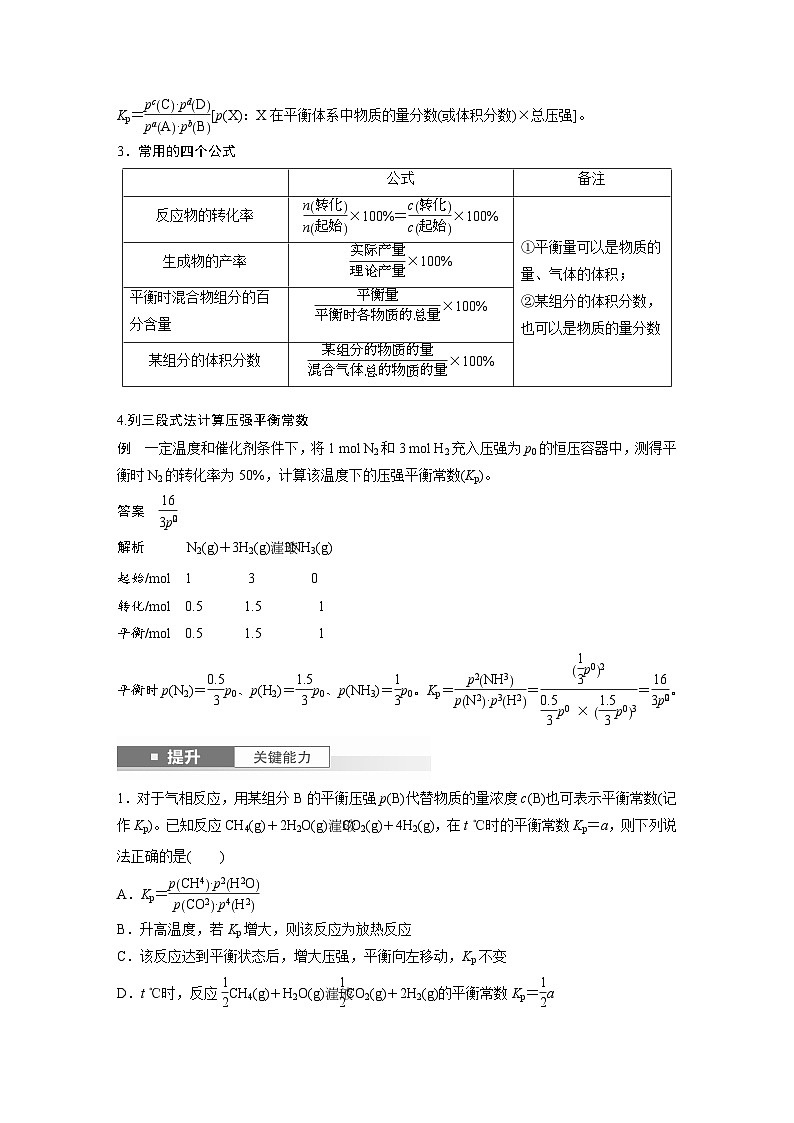 Kp=pᶜ(C)·pᵈ(D)/pᵃ(A)·pᵇ(B)[p(X):X在平衡体系中物质的量分数(或体积分数)×总压强]。
3.常用的四个公式
公式 备注
反应物的转化率 n(转化)/n(起始)×100%=c(转化)/c(起始)×100%
生成物的产率 实际产量/理论产量×100%
平衡时混合物组分的百分含量 平衡量/平衡时各物质的总量×100%
某组分的体积分数 某组分的物质的量/混合气体总的物质的量×100%
①平衡量可以是物质的
量、气体的体积;
②某组分的体积分数,
也可以是物质的量分数
4.列三段式法计算压强平衡常数
例 一定温度和催化剂条件下,将1 mol N₂和3 mol H₂充入压强为p₀的恒压容器中,测得平
衡时N₂的转化率为50%,计算该温度下的压强平衡常数(Kp)。
答案 16/3p
解析 N₂(g)+3H₂(g) NH₃(g)
起始/mol 1 3 0
转化/mol 0.5 1.5 1
平衡/mol 0.5 1.5 1
平衡时p(N₂)=0.5/3p₀、p(H₂)=1.5/3p₀、p(NH₃)=1/3p₀。Kp=p²(NH³)/p(N²)·p³(H²)=(1/3p⁰)²/0.5/3p⁰×(1.5/3p⁰)³=16/3p。
提升 关键能力
1.对于气相反应,用某组分B的平衡压强p(B)代替物质的量浓度c(B)也可表示平衡常数(记
作Kp)。已知反应CH₄(g)+2H₂O(g) CO₂(g)+4H₂(g),在t ℃时的平衡常数Kp=a,则下列说
法正确的是( )
A.Kp=p(CH⁴)·p²(H²O)/p(CO²)·p⁴(H²)
B.升高温度,若Kp增大,则该反应为放热反应
C.该反应达到平衡状态后,增大压强,平衡向左移动,Kp不变
D.t ℃时,反应1/2CH₄(g)+H₂O(g) 1/2CO₂(g)+2H₂(g)的平衡常数Kp=1/2a